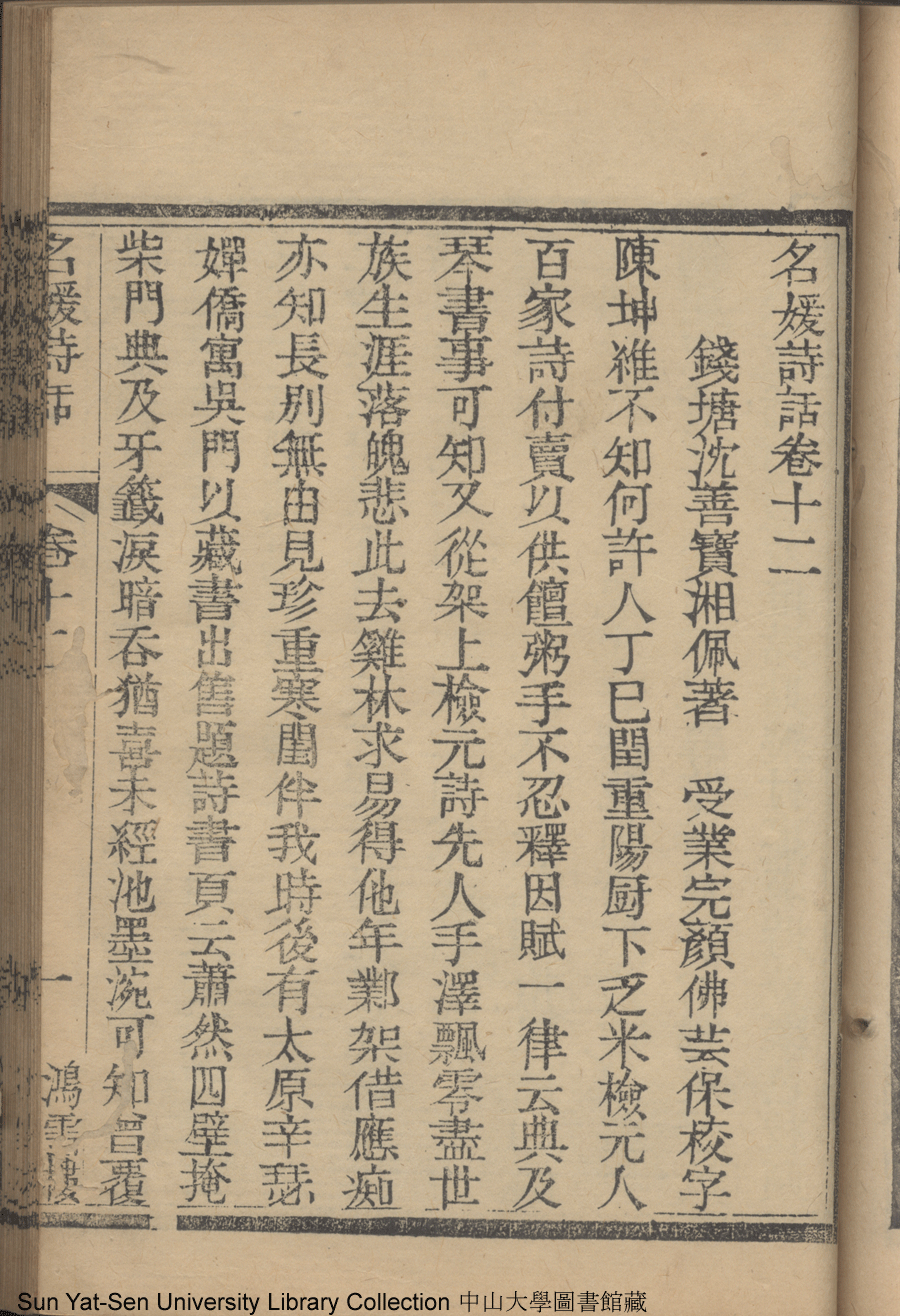 名媛詩話卷十二
錢塘沈善寶湘佩著 受業完顏佛芸保校字
陳坤維不知何許人丁巳閏重陽厨下乏米檢元人
百家詩付賣以供饘粥手不忍釋因賦一律云典及
琴書事可知又從架上檢元詩先人手澤飄零盡世
族生涯落魄悲此去雞林求易得他年鄴架借應痴
亦知長別無由見珍重寒閨伴我時後有太原辛瑟
嬋僑寓吳門以藏書出售題詩書頁云蕭然四壁掩
柴門典及牙籤淚暗吞猶喜未經池墨涴可知曾覆
名媛詩話 卷十二 一 鴻雪樓
Sun Yat-Sen University Library Collection 中山大學圖書館藏